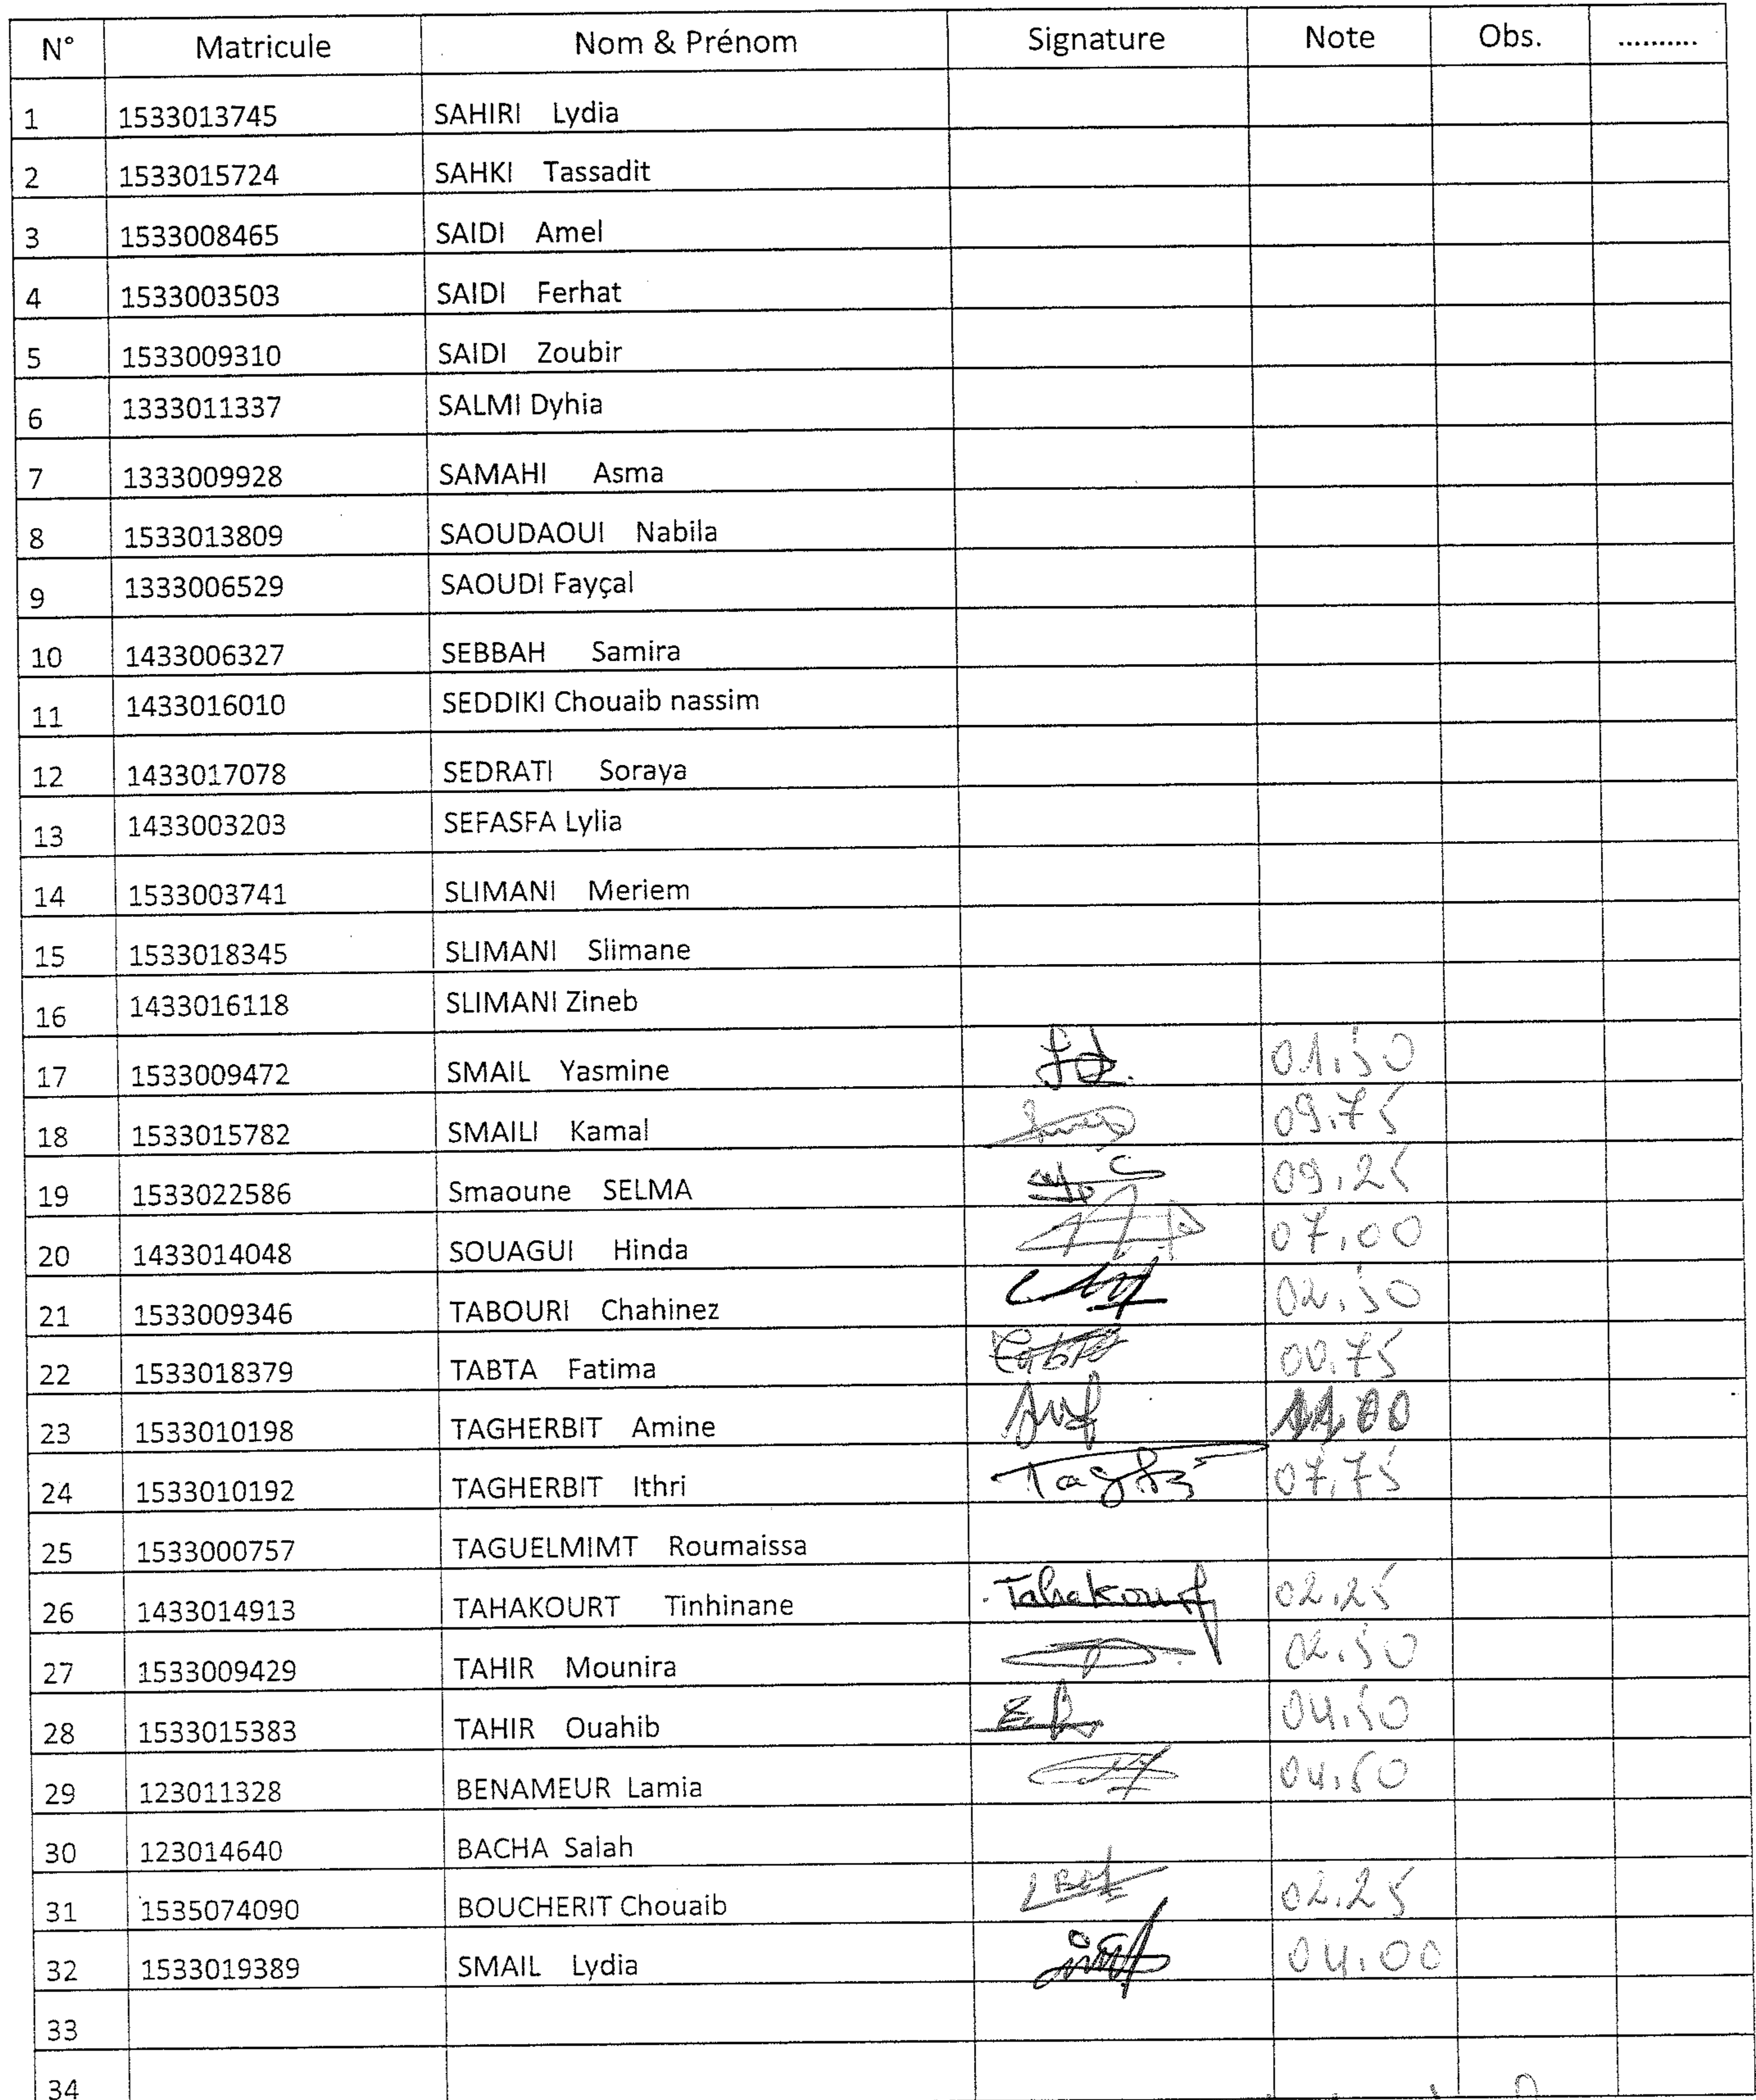 N° Matricule Nom & Prénom Signature Note Obs. ..........
1 1533013745 SAHIRI Lydia
2 1533015724 SAHKI Tassadit
3 1533008465 SAIDI Amel
4 1533003503 SAIDI Ferhat
5 1533009310 SAIDI Zoubir
6 1333011337 SALMI Dyhia
7 1333009928 SAMAHI Asma
8 1533013809 SAOUDAOUI Nabila
9 1333006529 SAOUDI Fayçal
10 1433006327 SEBBAH Samira
11 1433016010 SEDDIKI Chouaib nassim
12 1433017078 SEDRATI Soraya
13 1433003203 SEFASFA Lylia
14 1533003741 SLIMANI Meriem
15 1533018345 SLIMANI Slimane
16 1433016118 SLIMANI Zineb
17 1533009472 SMAIL Yasmine 01.50
18 1533015782 SMAILI Kamal 09.75
19 1533022586 Smaoune SELMA 09.25
20 1433014048 SOUAGUI Hinda 07.00
21 1533009346 TABOURI Chahinez 02.50
22 1533018379 TABTA Fatima 00.75
23 1533010198 TAGHERBIT Amine 11.00
24 1533010192 TAGHERBIT Ithri 07.75
25 1533000757 TAGUELMIMT Roumaissa
26 1433014913 TAHAKOURT Tinhinane Tahakourt 02.25
27 1533009429 TAHIR Mounira 02.50
28 1533015383 TAHIR Ouahib 04.50
29 123011328 BENAMEUR Lamia 04.50
30 123014640 BACHA Salah
31 1535074090 BOUCHERIT Chouaib 02.25
32 1533019389 SMAIL Lydia 04.00
33
34